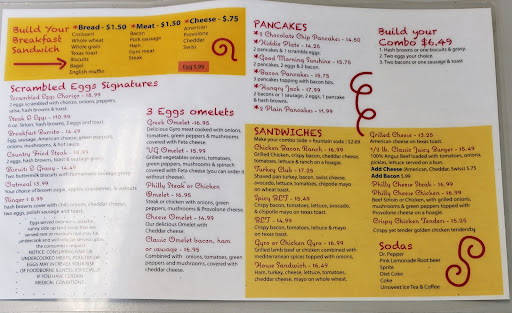 Build Your
Breakfast
Sandwich
*Bread - $1.50
Croissant
Whole wheat
Whole grain
Texas toast
Biscuits
Bagel
English muffin
*Meat - $1.50
Bacon
Pork sausage
Ham
Gyro meat
Steak
*Cheese - $.75
American
Provolone
Cheddar
Swiss
Egg
Scrambled Eggs Signatures
Scrambled Egg Chorizo - 18.99
2 eggs scrambled with chorizo, onions, peppers,
salsa, hash browns & toast.
Steak & Egg
oz. Sirloin, hash browns, 2 eggs and toast.
Breakfast Burrito - 14.49
Egg, sausage, American cheese, green peppers,
onions, mushrooms, & hot sauce.
Country Fried Steak
2 eggs, hash browns, toast & sausage gravy
Biscuits & Gravy - 14.49
Two buttermilk biscuits with homemade sausage gravy
Oatmeal 13.99
Your choice of brown sugar, apples, cranberries, & walnuts
Ringer
Hash browns cover with chili, onions, cheddar cheese,
two eggs, polish sausage and toast.
Eggs served over easy, poached,
sunny side up and those that are
served raw or cooked rare may be
undercook and will only be served upon
the consumer's request
NOTICE: CONSUMING RAW OR
UNDERCOOKED MEATS, POULTRY OR
EGGS MAY INCREASE YOUR RISK
OF FOODBORNE ILLNESS, ESPECIALLY
IF YOU HAVE CERTAIN
MEDICAL CONDITIONS
3 Eggs omelets
Greek Omelet - 16.95
Delicious Gyro meat cooked with onions,
tomatoes, green peppers & mushrooms
covered with Feta cheese
VG Omelet - 15.99
Grilled vegetables: onions, tomatoes,
green peppers, mushrooms & spinach
covered with Feta cheese (you can order it
without cheese).
Philly Steak or Chicken
Omelet - 16.95
Steak or chicken with onions, green
peppers, mushrooms & Provolone cheese.
Cheese Omelet - 14.99
Our delicious Omelet with
Cheddar cheese.
Classic Omelet bacon, ham
or sausage - 16.95
Combined with onions, tomatoes, green
peppers and mushrooms, covered with
cheddar cheese.
PANCAKES
*3 Chocolate Chip Pancakes - 14.50
*Kiddie Plate - 14.25
2 pancakes & 1 scramble eggs.
*Good Morning Sunshine - 15.75
2 pancakes, 2 eggs & 2 bacon.
*Bacon Pancakes - 15.75
3 pancakes topping with bacon bits.
*Hungry Jack - 17.99
2 bacons or 1 sausage, 2 eggs, 1 pancake
& hash browns.
*3 Plain Pancakes - 11.99
Build your
Combo $6.49
1. Hash browns or one biscuits & gravy.
2. Two eggs your choice.
3. Two bacons or one sausage & toast
SANDWICHES
Make your combo (side + fountain soda) $2.69
Chicken Bacon Ranch - 16.99
Grilled Chicken, crispy bacon, cheddar cheese,
tomatoes, lettuce & ranch on a hoagie.
Turkey Club - 17.25
Shaved pan turkey, bacon, swiss cheese,
avocado, lettuce, tomatoes, chipotle mayo
on wheat toast.
Spicy BLT - 15.49
Crispy bacon, tomatoes, lettuce, avocado,
& chipotle mayo on texas toast.
BLT - 14.99
Crispy bacon, tomato, lettuce & mayo
on texas toast.
Gyro or Chicken Gyro - 16.99
Grilled lamb beef or chicken combined with
mediterranean spices topped with onions.
House Sandwich - 16.49
Ham, turkey, cheese, lettuce, tomatoes,
cheddar cheese, mayo on wheat toast.
Grilled Cheese - 13.25
American cheese on texas toast.
1/2 lb. Classic Juicy Burger - 15.49
100% Angus Beef loaded with tomatoes, onions,
pickles, lettuce served on a bun.
Add Cheese (American, Cheddar, Swiss) $.75
Add Bacon
Philly Cheese Steak - 16.99
Philly Cheese Chicken - 16.99
Beef Sirloin or Chicken, with grilled onions,
mushrooms & green peppers topped with
Provolone cheese on a hoagie.
Crispy Chicken Tenders - 15.25
Crispy yet tender golden chicken tenders
Sodas
Dr. Pepper
Pink Lemonade Root beer
Sprite
Diet Coke
Coke
Unsweet Ice Tea & Coffee